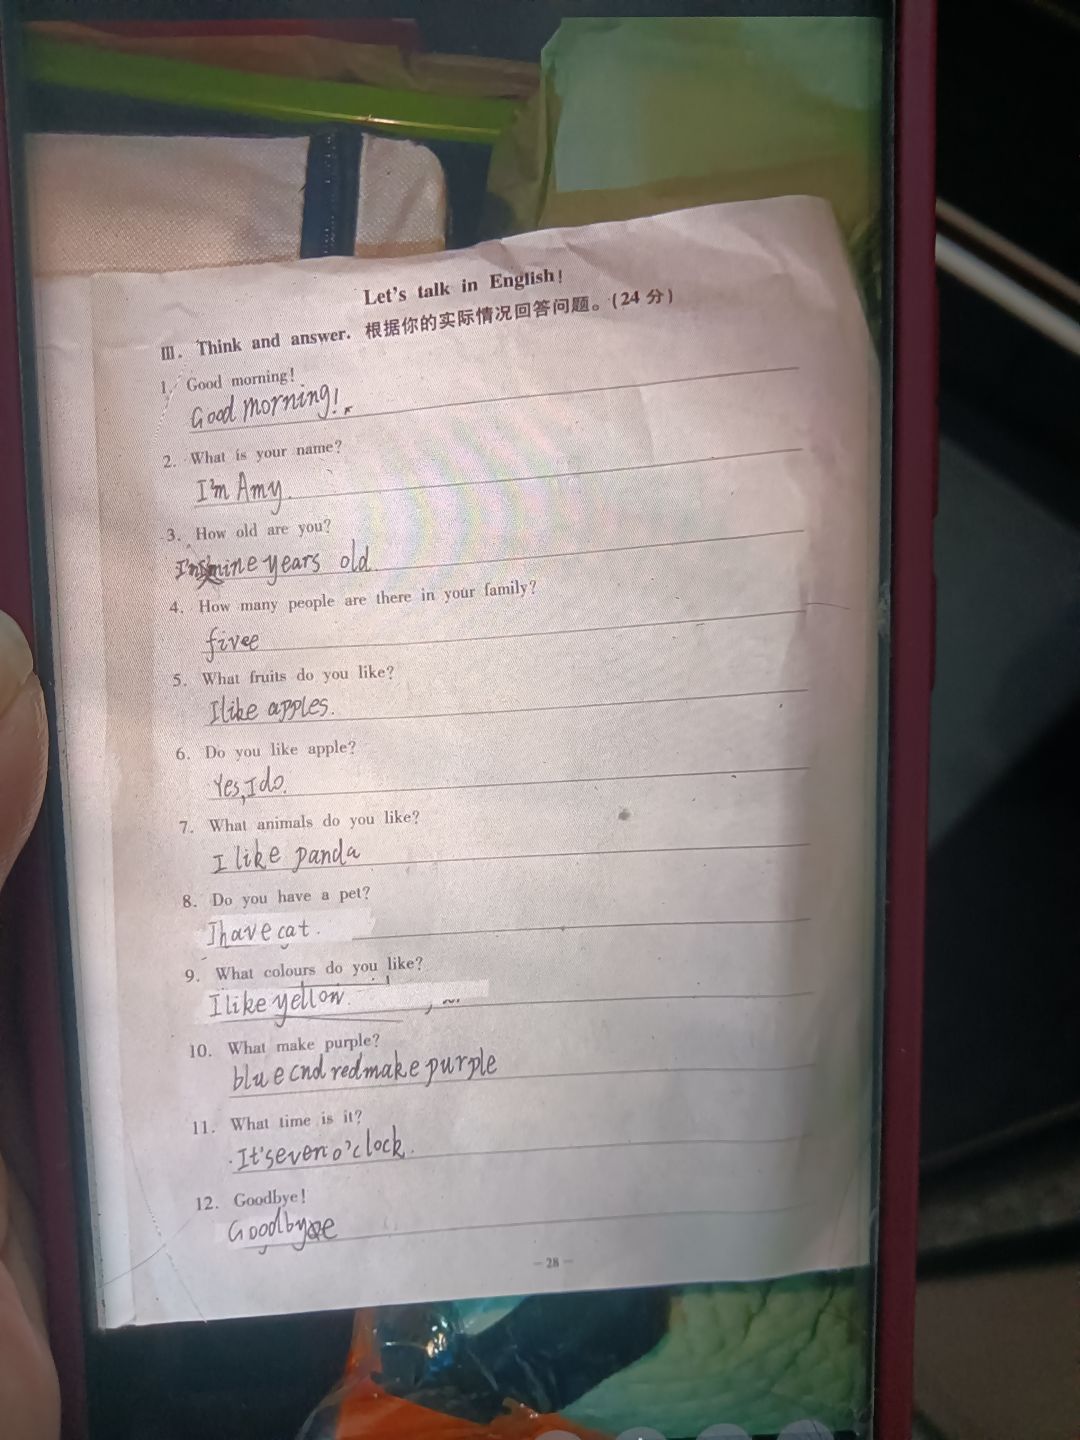 Let's talk in English!
Ⅲ. Think and answer. 根据你的实际情况回答问题。(24 分)
1. Good morning!
Good morning!
2. What is your name?
I'm Amy.
3. How old are you?
I'm nine years old
4. How many people are there in your family?
fivee
5. What fruits do you like?
I like apples.
6. Do you like apple?
Yes, I do.
7. What animals do you like?
I like panda
8. Do you have a pet?
I have cat.
9. What colours do you like?
I like yellow
10. What make purple?
blue cnd red make purple
11. What time is it?
It's even o'clock.
12. Goodbye!
Goodbye
— 28 —